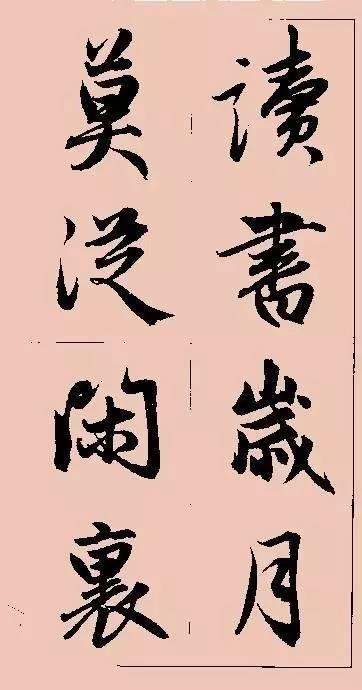 讀書歲月
莫從閑裏